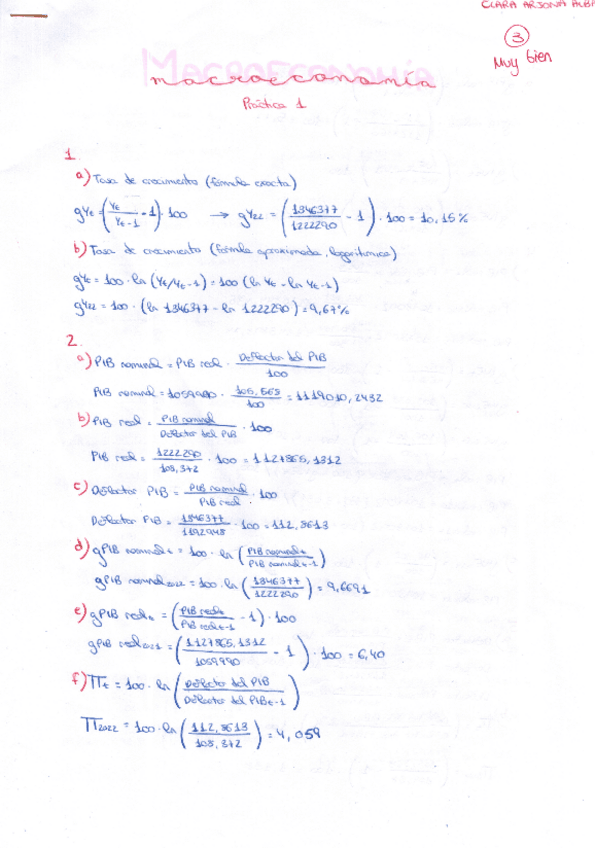 CLARA ARJONA ALBA
3
Muy bien
Macroeconomía
macroeconomía
Práctica 1
1.
a) Tasa de crecimiento (fórmula exacta)
gYt = (Yt / Yt-1 - 1) · 100 → gY22 = (1346377 / 1222290 - 1) · 100 = 10,15%
b) Tasa de crecimiento (fórmula aproximada, logarítmica)
gYt = 100 · ln (Yt/Yt-1) = 100 (ln Yt - ln Yt-1)
gY22 = 100 · (ln 1346377 - ln 1222290) = 9,67%
2.
a) PIB nominal = PIB real · Deflector del PIB / 100
PIB nominal = 1059990 · 105,565 / 100 = 1119010,2432
b) PIB real = PIB nominal / Deflector del PIB · 100
PIB real = 1222290 / 108,372 · 100 = 1127865,1312
c) Deflector PIB = PIB nominal / PIB real · 100
Deflector PIB = 1346377 / 1192948 · 100 = 112,8613
d) gPIB nominal t = 100 · ln (PIB nominal t / PIB nominal t-1)
gPIB nominal 2022 = 100 · ln (1346377 / 1222290) = 9,6691
e) gPIB real t = (PIB real t / PIB real t-1 - 1) · 100
gPIB real 2021 = (1127865,1312 / 1059990 - 1) · 100 = 6,40
f) Πt = 100 · ln (Deflector del PIB / Deflector del PIB t-1)
Π2022 = 100 · ln (112,8613 / 108,372) = 4,059